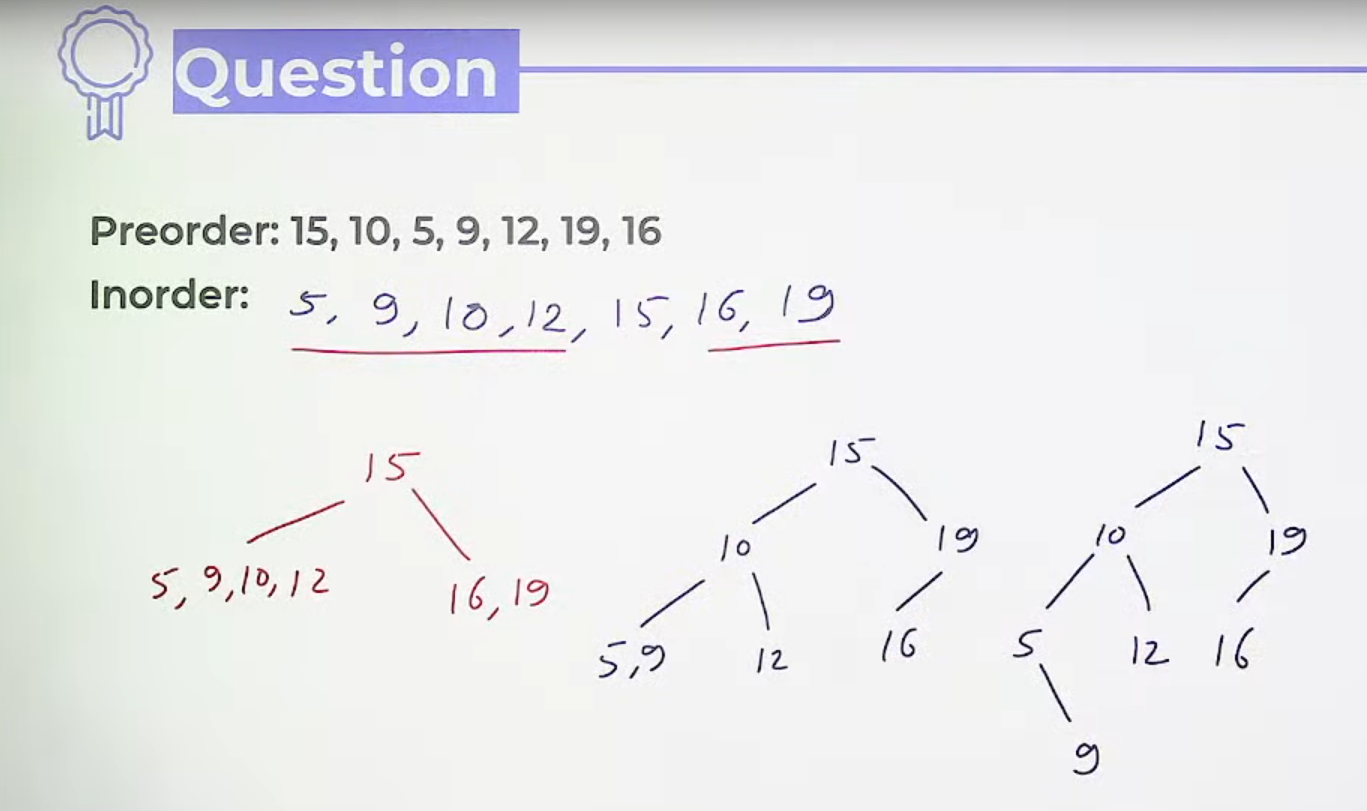 Question
Preorder: 15, 10, 5, 9, 12, 19, 16
Inorder: 5, 9, 10, 12, 15, 16, 19
15
5, 9, 10, 12
16, 19
15
10
19
5, 9
12
16
15
10
19
5
12
16
9